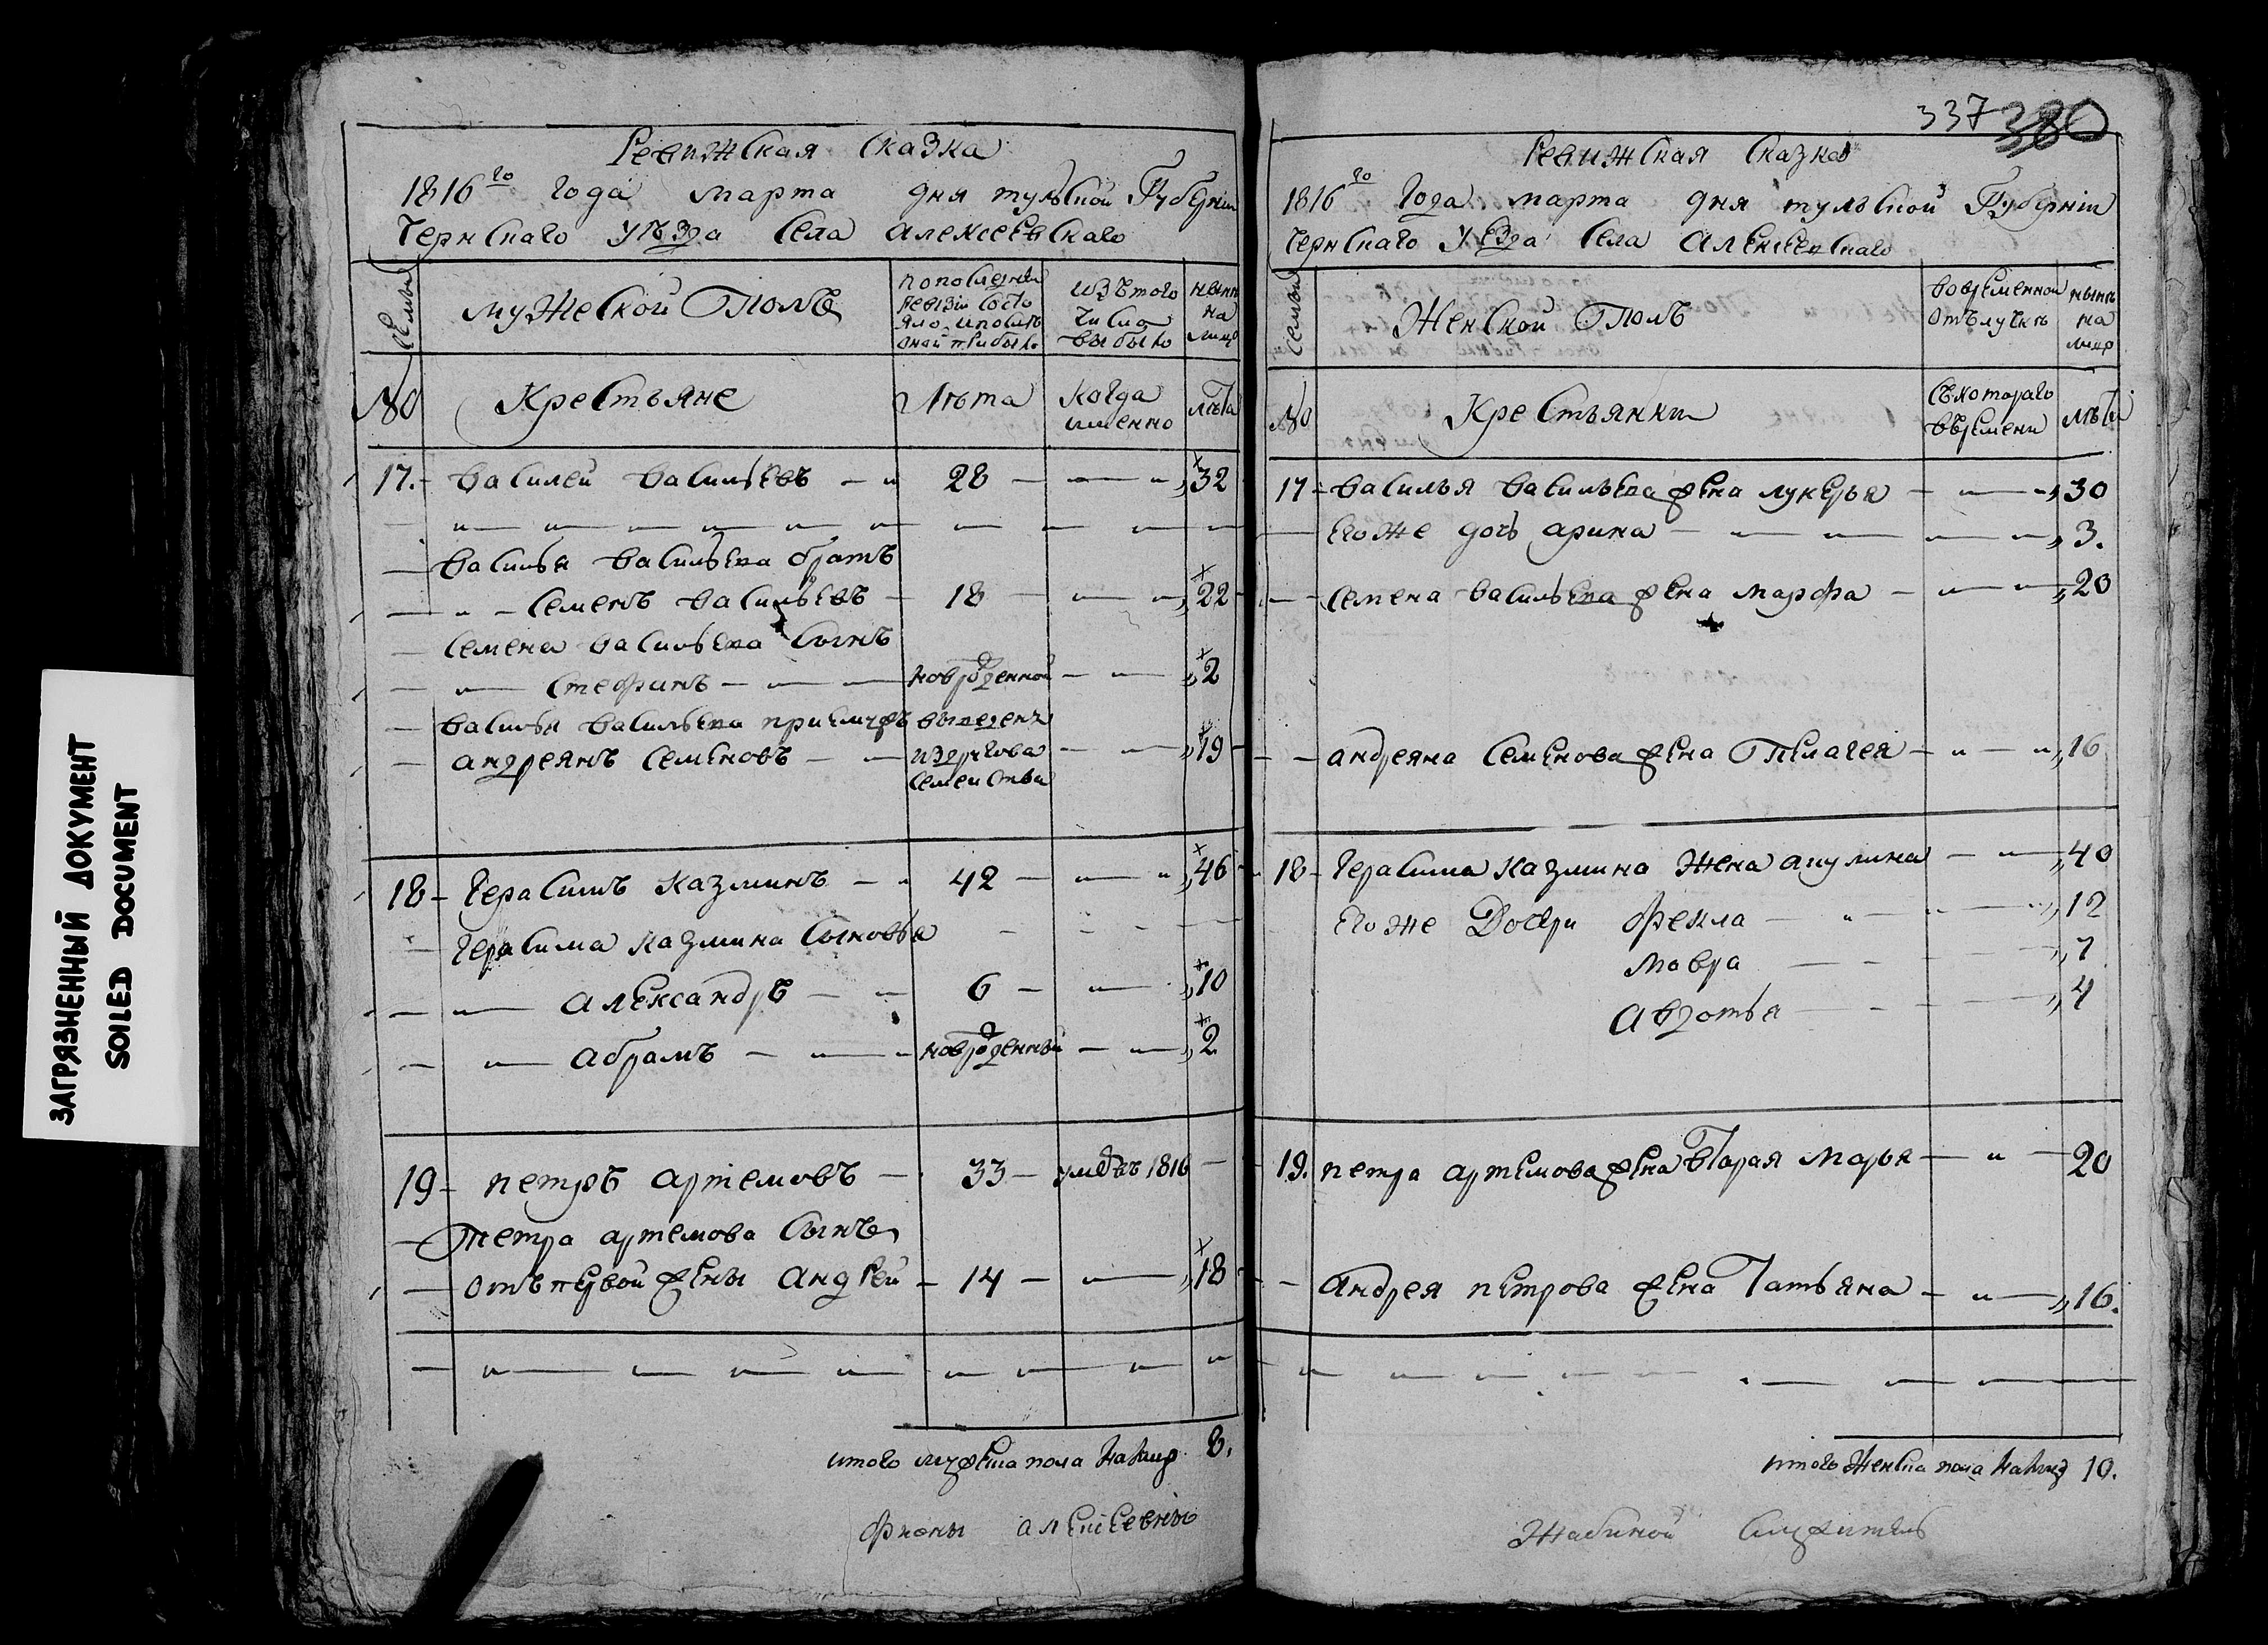 ЗАГРЯЗНЕННЫЙ ДОКУМЕНТ
SOILED DOCUMENT
Ревижская сказка
1816го года марта дня тульской Губернии
Чернскаго уѣзда села алексеевскаго
семьи
мужеской Полъ
по последней ревизіи состояло и после оной прибыло
изъ того числа выбыло
нынѣ на лицо
№
Крестьяне
Лѣта
Когда именно
лѣта
17. василей васильевъ 28 32
василья васильева братъ
семенъ васильевъ 18 22
семена васильева сынъ
стефанъ новорожденной 2
василья васильева приемышъ выведенъ
андреянъ семеновъ из другова 19
семейства
18 Герасимъ казминъ 42 46
Герасима казмина сыновья
александръ 6 10
абрамъ новорожденный 2
19 петръ артемовъ 33 умре въ 1816
Петра артемова сынъ
отъ первой жены андрей 14 18
итого мужеска пола на лицо 8.
Фионы алексеевны
337 380
Ревижская сказка
1816го года марта дня тульской Губерніи
Чернскаго уезда села алексеевскаго
семьи
Женской Полъ
во временной отълучкѣ
нынѣ на лицо
№
Крестьянки
съ котораго времени
лѣта
17 василья васильева жена лукерья 30
его же дочь арина 3.
семена васильева жена марфа 20
андреяна семенова жена Пелагея 16
18 Герасима казмина жена акулина 40
его же Дочери фекла 12
мавра 7
авдотья 4
19. петра артемова жена вторая марья 20
андрея петрова жена Татьяна 16.
итого женска пола на лицо 10.
Жабиной служитель